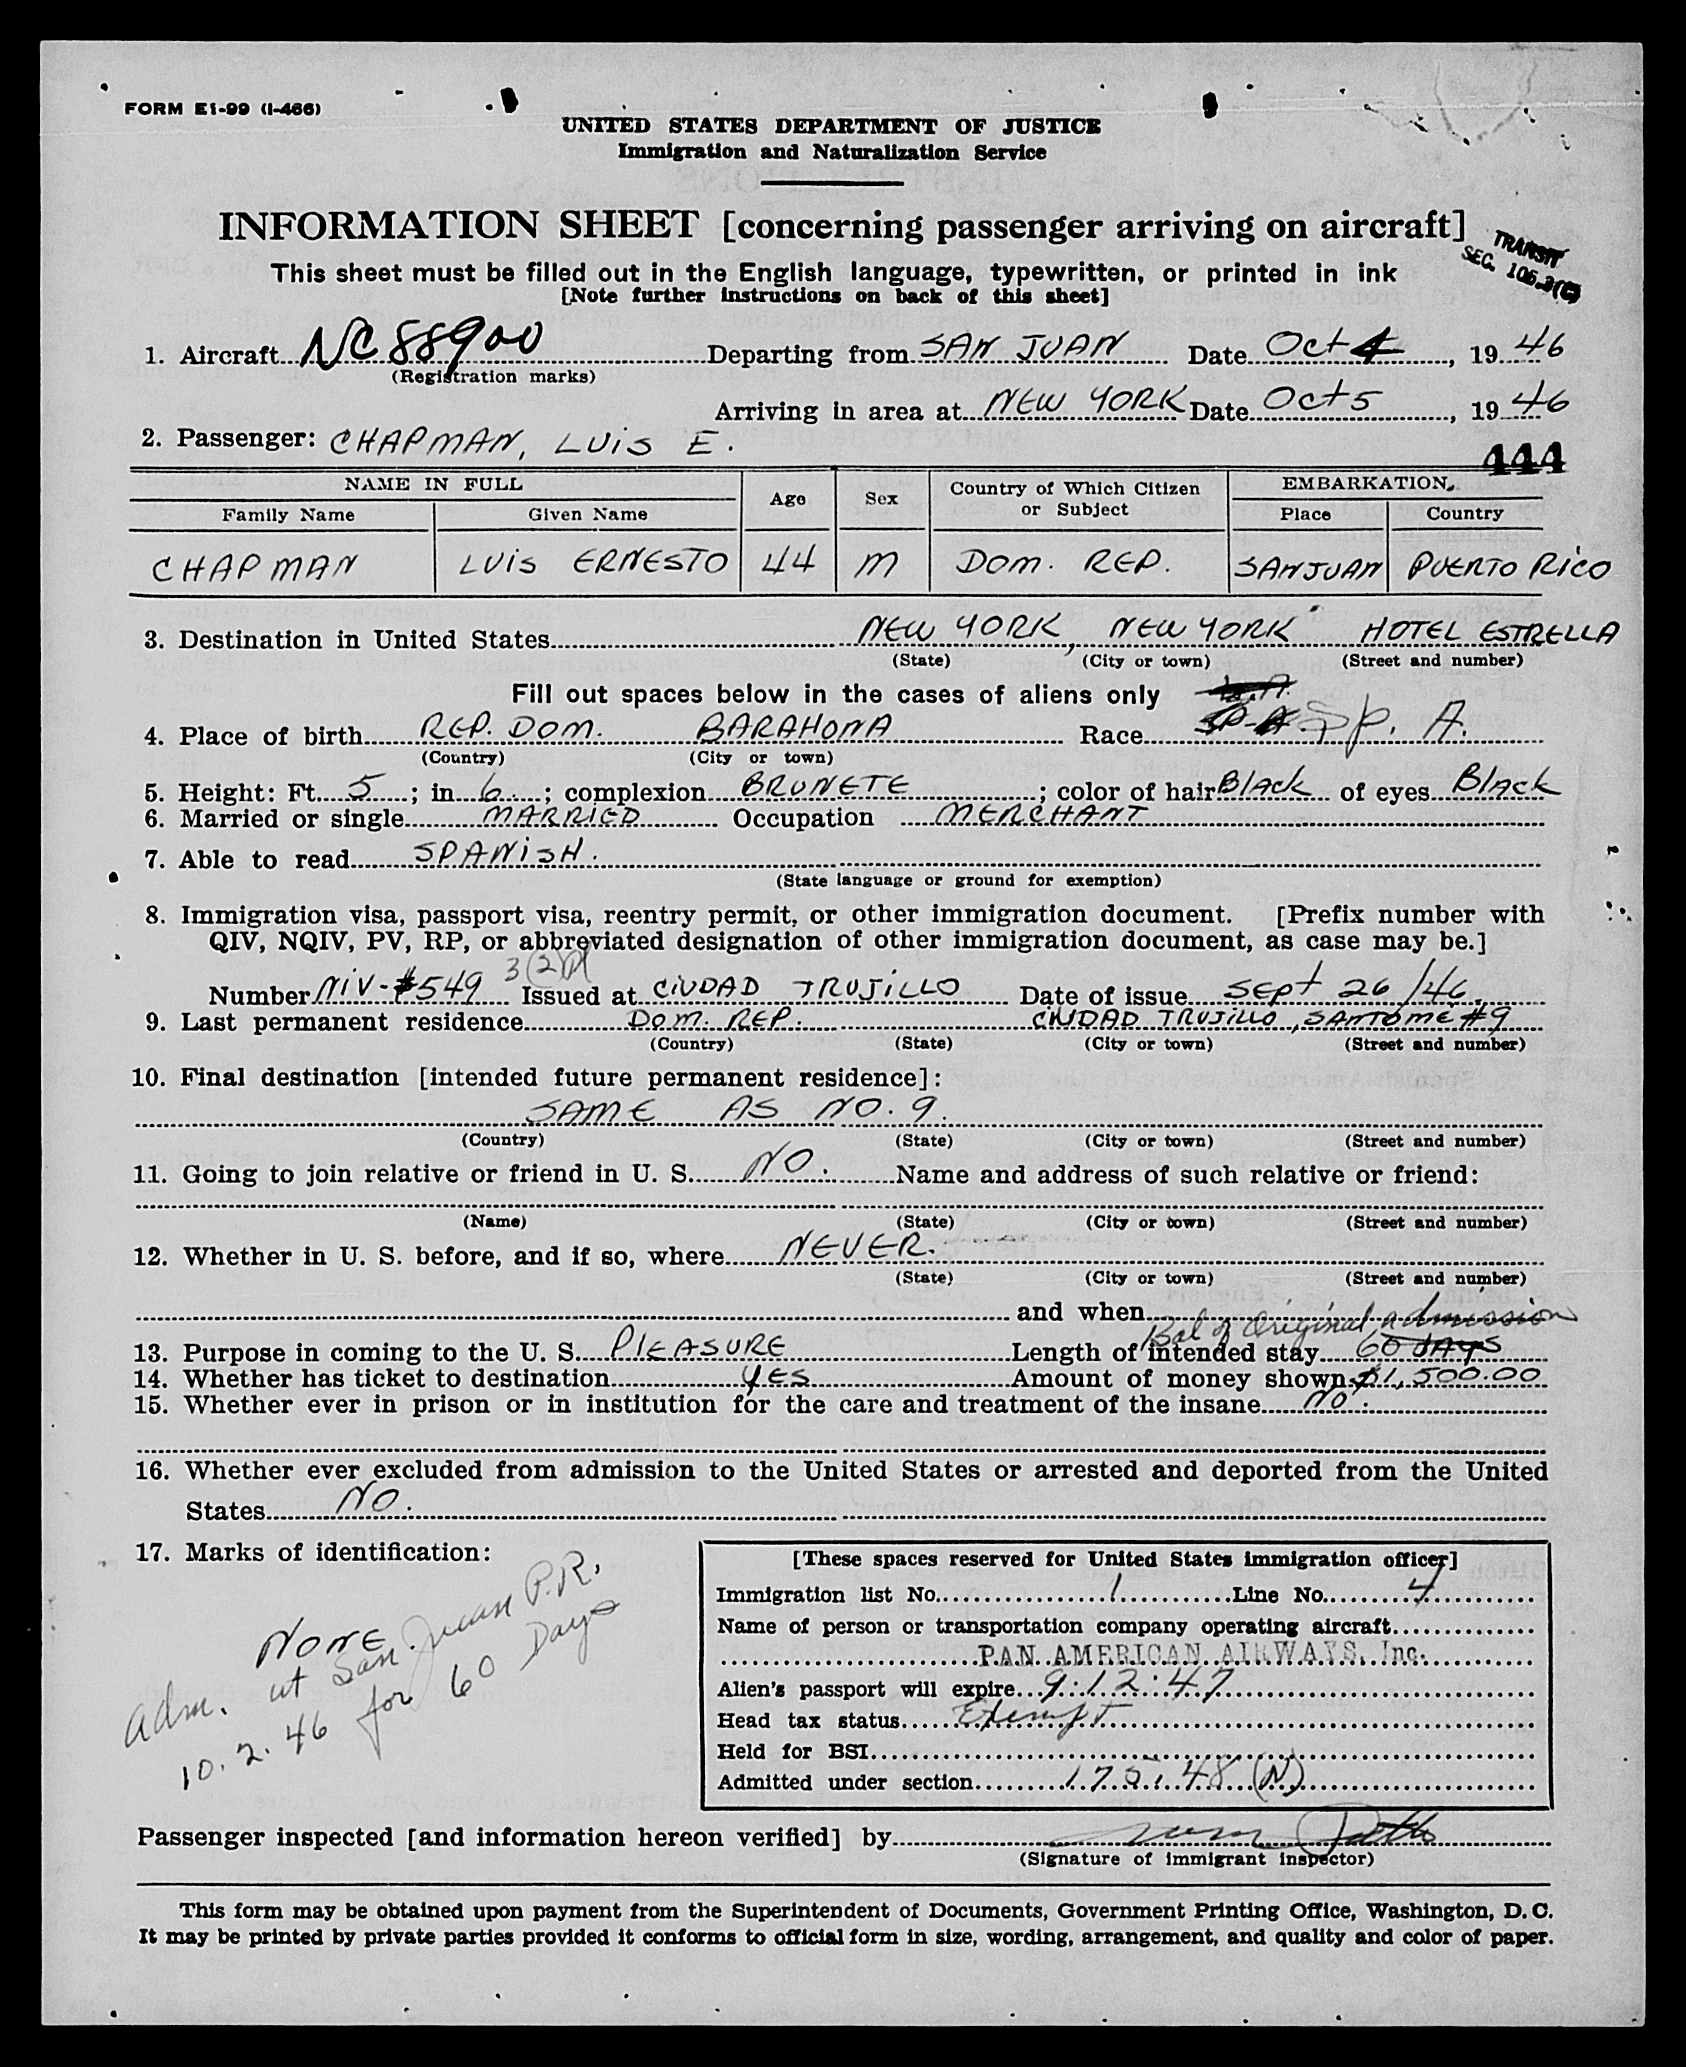 FORM E1-99 (I-466)
UNITED STATES DEPARTMENT OF JUSTICE
Immigration and Naturalization Service
INFORMATION SHEET [concerning passenger arriving on aircraft]
TRANSIT
SEC. 106.3(C)
This sheet must be filled out in the English language, typewritten, or printed in ink
[Note further instructions on back of this sheet]
1. Aircraft NC 88900 Departing from SAN JUAN Date Oct 4, 19 46
(Registration marks)
Arriving in area at NEW YORK Date Oct 5, 19 46
2. Passenger: CHAPMAN, LUIS E.
444
NAME IN FULL Age Sex Country of Which Citizen or Subject EMBARKATION
Family Name Given Name Place Country
CHAPMAN LUIS ERNESTO 44 M DOM. REP. SAN JUAN PUERTO RICO
3. Destination in United States NEW YORK, NEW YORK HOTEL ESTRELLA
(State) (City or town) (Street and number)
Fill out spaces below in the cases of aliens only
4. Place of birth REP. DOM. BARAHONA Race Sp. A.
(Country) (City or town)
5. Height: Ft. 5; in. 6; complexion BRUNETE; color of hair Black of eyes Black
6. Married or single MARRIED Occupation MERCHANT
7. Able to read SPANISH.
(State language or ground for exemption)
8. Immigration visa, passport visa, reentry permit, or other immigration document. [Prefix number with
QIV, NQIV, PV, RP, or abbreviated designation of other immigration document, as case may be.]
Number NIV-#549 3(2) Issued at CIUDAD TRUJILLO Date of issue Sept 26/46.
9. Last permanent residence DOM. REP. CIUDAD TRUJILLO, SANTOME #9
(Country) (State) (City or town) (Street and number)
10. Final destination [intended future permanent residence]:
SAME AS NO. 9.
(Country) (State) (City or town) (Street and number)
11. Going to join relative or friend in U. S. NO. Name and address of such relative or friend:
(Name) (State) (City or town) (Street and number)
12. Whether in U. S. before, and if so, where NEVER.
(State) (City or town) (Street and number)
and when
Bal of Original admission
13. Purpose in coming to the U. S. PLEASURE Length of intended stay 60 DAYS
14. Whether has ticket to destination YES Amount of money shown $1,500.00
15. Whether ever in prison or in institution for the care and treatment of the insane NO.
16. Whether ever excluded from admission to the United States or arrested and deported from the United
States NO.
17. Marks of identification:
NONE.
adm. at San Juan P.R.
10.2.46 for 60 Days
[These spaces reserved for United States immigration officer]
Immigration list No. 1 Line No. 4
Name of person or transportation company operating aircraft
PAN AMERICAN AIRWAYS, Inc.
Alien's passport will expire 9.12.47
Head tax status Exempt
Held for BSI
Admitted under section 175.48 (N)
Passenger inspected [and information hereon verified] by
(Signature of immigrant inspector)
This form may be obtained upon payment from the Superintendent of Documents, Government Printing Office, Washington, D. C.
It may be printed by private parties provided it conforms to official form in size, wording, arrangement, and quality and color of paper.